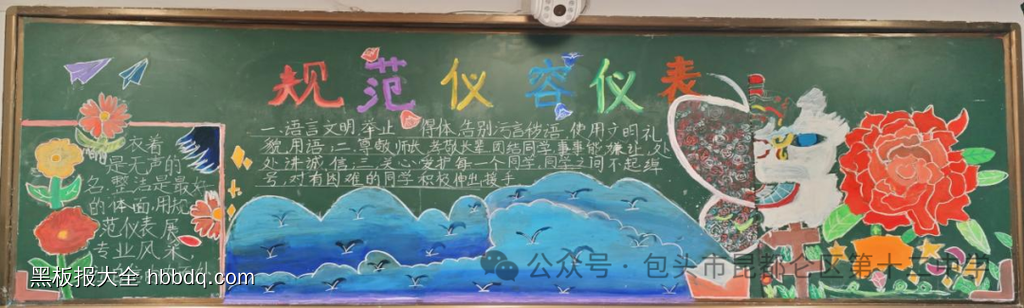 规范仪容仪表
一、语言文明,举止 得体,告别污言秽语,使用文明礼
貌用语;二、尊敬师长,孝敬长辈,团结同学,事事能谦让,处
处讲诚信;三、关心爱护每一个同学,同学之间不起绰
号,对有困难的同学积极伸出援手
衣着
是无声的
名 整洁是最好
的体面,用规
范仪表,展
专业风采,
黑板报大全 hbbdq.com
公众号·包头市昆都仑区第十五中学